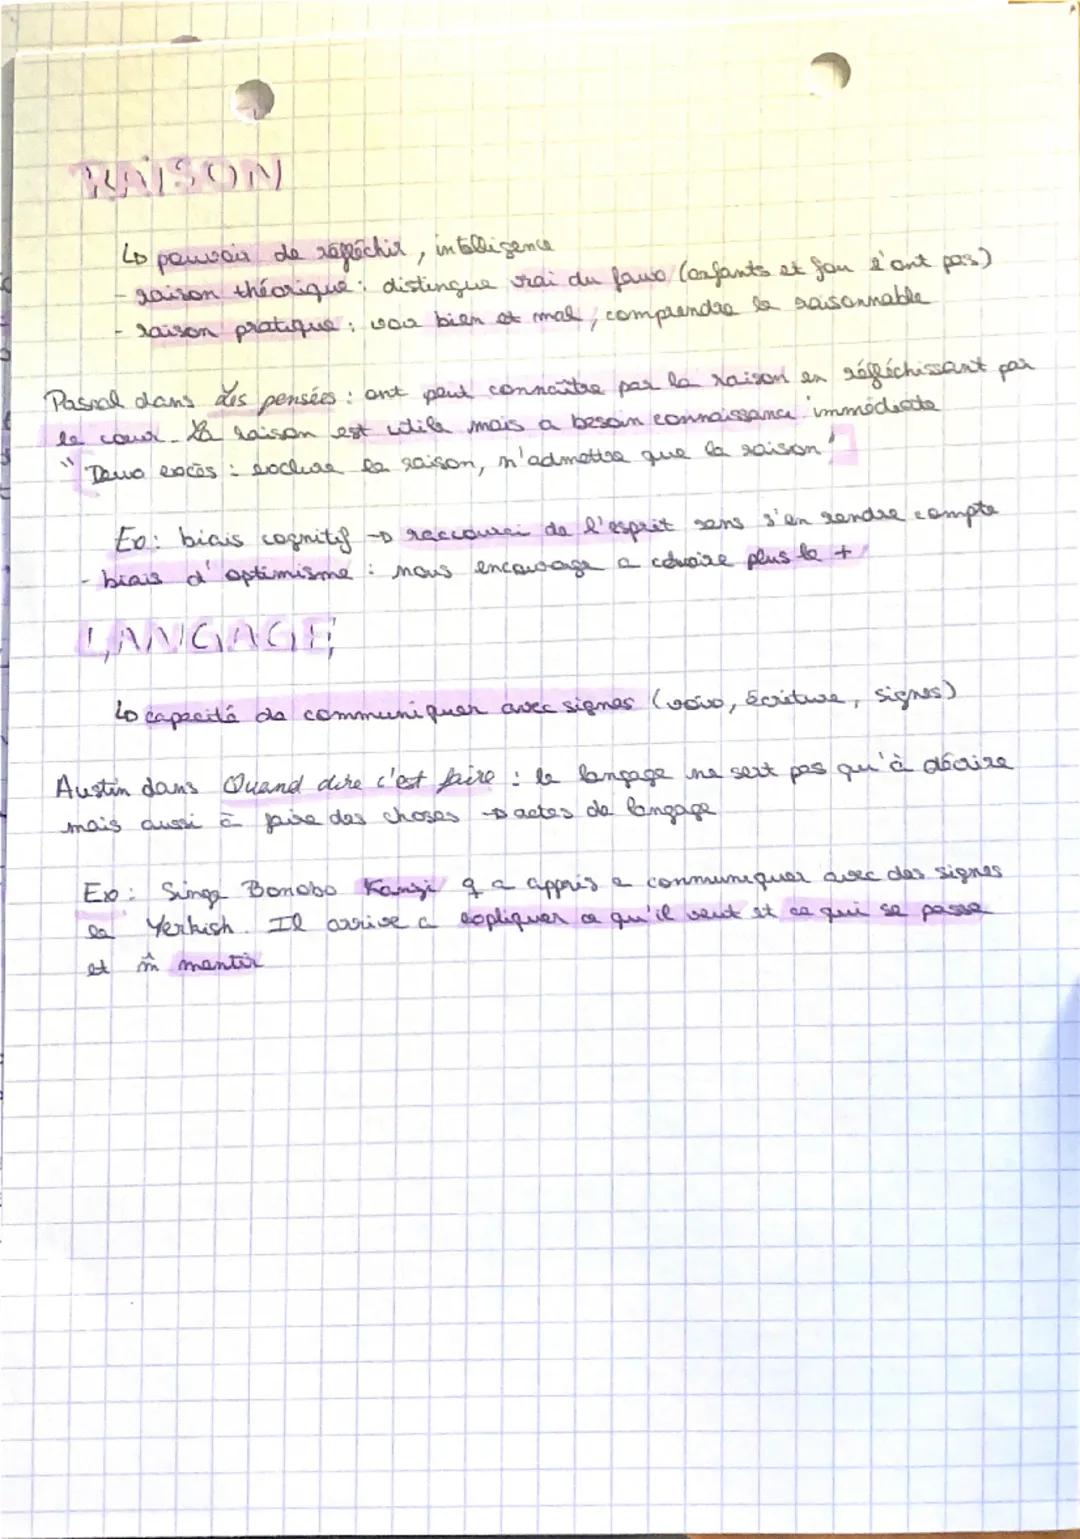 RAISON
↳ pouvoir de réfléchir, intelligence
- raison théorique : distingue vrai du faux (enfants et fou l'ont pas)
- raison pratique : voir bien et mal, comprendre le raisonnable
Pascal dans Les pensées : ont peut connaître par la raison en réfléchissant par
le cœur. La raison est utile mais a besoin connaissance immédiate
"Deux excès : exclure la raison, n'admettre que la raison"
Ex : biais cognitif → raccourci de l'esprit sans s'en rendre compte
- biais d'optimisme : nous encourage a croire plus le +
LANGAGE
↳ capacité de communiquer avec signes (voix, écriture, signes)
Austin dans Quand dire c'est faire : le langage ne sert pas qu'à décrire
mais aussi à faire des choses → actes de langage
Ex : Singe Bonobo Kanzi q a appris a communiquer avec des signes
le Yerkish. Il arrive a expliquer ce qu'il veut et ce qui se passe
et m̂ mentir